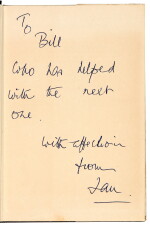 To
Bill
who has helped
with the next
one.
with affection
from
Ian.